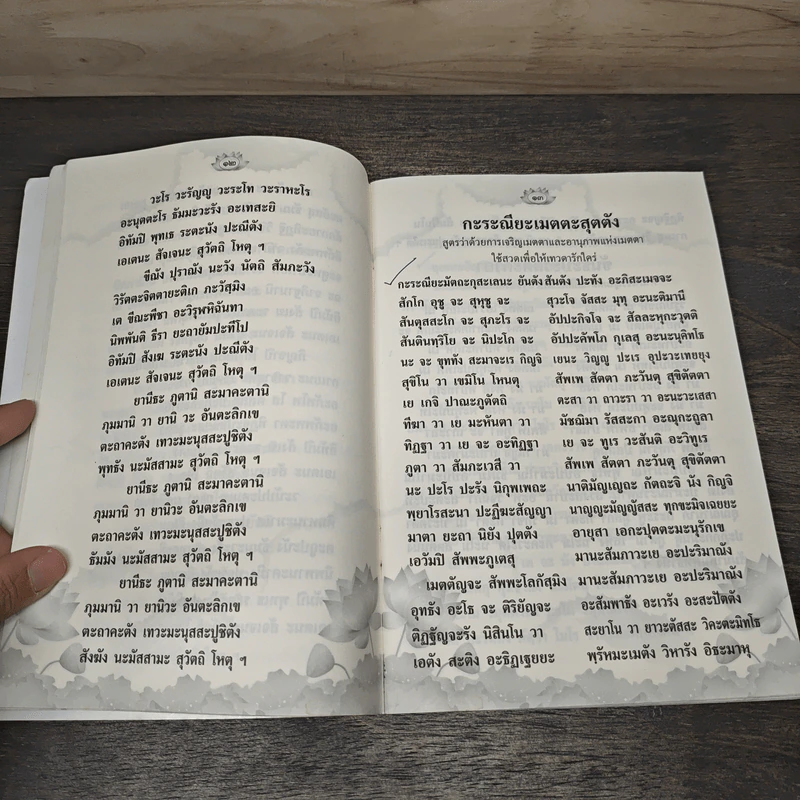 ๑๒
วะโร วะรัญญู วะระโท วะราหะโร
อะนุตตะโร ธัมมะวะรัง อะเทสะยิ
อิทัมปิ พุทเธ ระตะนัง ปะณีตัง
เอเตนะ สัจเจนะ สุวัตถิ โหตุ ฯ
ขีณัง ปุราณัง นะวัง นัตถิ สัมภะวัง
วิรัตตะจิตตายะติเก ภะวัส๎มิง
เต ขีณะพีชา อะวิรุฬหิฉันทา
นิพพันติ ธีรา ยะถายัมปะทีโป
อิทัมปิ สังเฆ ระตะนัง ปะณีตัง
เอเตนะ สัจเจนะ สุวัตถิ โหตุ ฯ
ยานีธะ ภูตานิ สะมาคะตานิ
ภุมมานิ วา ยานิ วะ อันตะลิกเข
ตะถาคะตัง เทวะมะนุสสะปูชิตัง
พุทธัง นะมัสสามะ สุวัตถิ โหตุ ฯ
ยานีธะ ภูตานิ สะมาคะตานิ
ภุมมานิ วา ยานิวะ อันตะลิกเข
ตะถาคะตัง เทวะมะนุสสะปูชิตัง
ธัมมัง นะมัสสามะ สุวัตถิ โหตุ ฯ
ยานีธะ ภูตานิ สะมาคะตานิ
ภุมมานิ วา ยานิวะ อันตะลิกเข
ตะถาคะตัง เทวะมะนุสสะปูชิตัง
สังฆัง นะมัสสามะ สุวัตถิ โหตุ ฯ
๑๓
กะระณียะเมตตะสุตตัง
สูตรว่าด้วยการเจริญเมตตาและอานุภาพแห่งเมตตา
ใช้สวดเพื่อให้เทวดารักใคร่
กะระณียะมัตถะกุสะเลนะ ยันตัง สันตัง ปะทัง อะภิสะเมจจะ
สักโก อุชู จะ สุหุชู จะ สุวะโจ จัสสะ มุทุ อะนะติมานี
สันตุสสะโก จะ สุภะโร จะ อัปปะกิจโจ จะ สัลละหุกะวุตติ
สันตินทริโย จะ นิปะโก จะ อัปปะคัพโภ กุเลสุ อะนะนุคิทโธ
นะ จะ ขุททัง สะมาจะเร กิญจิ เยนะ วิญญู ปะเร อุปะวะเทยยุง
สุขิโน วา เขมิโน โหนตุ สัพเพ สัตตา ภะวันตุ สุขิตัตตา
เย เกจิ ปาณะภูตัตถิ ตะสา วา ถาวะรา วา อะนะวะเสสา
ทีฆา วา เย มะหันตา วา มัชฌิมา รัสสะกา อะณุกะถูลา
ทิฏฐา วา เย จะ อะทิฏฐา เย จะ ทูเร วะสันติ อะวิทูเร
ภูตา วา สัมภะเวสี วา สัพเพ สัตตา ภะวันตุ สุขิตัตตา
นะ ปะโร ปะรัง นิกุพเพถะ นาติมัญเญถะ กัตถะจิ นัง กิญจิ
พ๎ยาโรสะนา ปะฏีฆะสัญญา นาญญะมัญญัสสะ ทุกขะมิจเฉยยะ
มาตา ยะถา นิยัง ปุตตัง อายุสา เอกะปุตตะมะนุรักเข
เอวัมปิ สัพพะภูเตสุ มานะสัมภาวะเย อะปะริมาณัง
เมตตัญจะ สัพพะโลกัส๎มิง มานะสัมภาวะเย อะปะริมาณัง
อุทธัง อะโธ จะ ติริยัญจะ อะสัมพาธัง อะเวรัง อะสะปัตตัง
ติฏฐัญจะรัง นิสินโน วา สะยาโน วา ยาวะตัสสะ วิคะตะมิทโธ
เอตัง สะติง อะธิฏเฐยยะ พ๎รัห๎มะเมตัง วิหารัง อิธะมาหุ